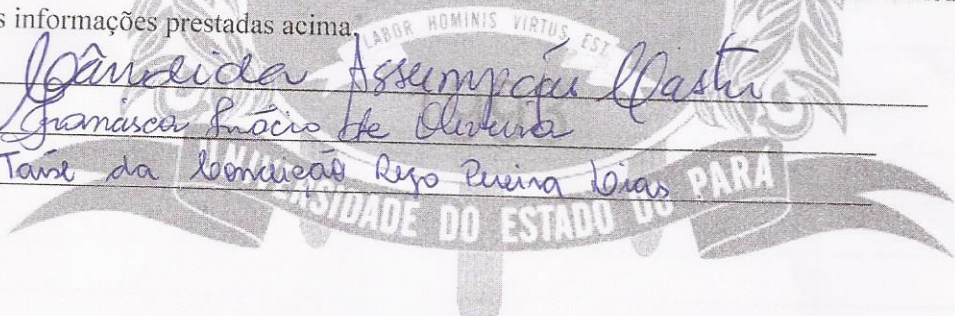 s informações prestadas acima.
LABOR HOMINIS VIRTUS EST
Cândida Assumpção Castro
Francisca Inácio de Oliveira
Taíse da Conceição Rego Pereira Dias
UNIVERSIDADE DO ESTADO DO PARÁ